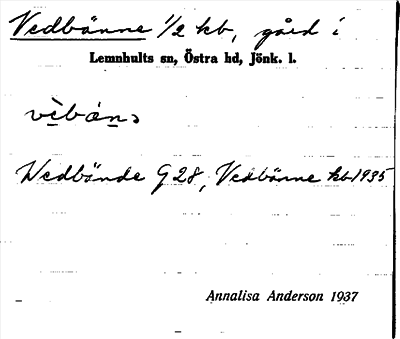 Vedbänne 1/2 kb, gård i
Lemnhults sn, Östra hd, Jönk. l.
Wedbände G28, Vedbänne kb 1935
Annalisa Anderson 1937